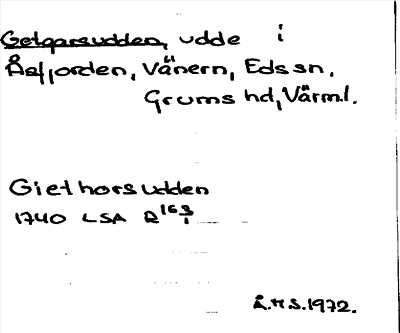 Getgarsudden, udde i
Åsfjorden, Vänern, Eds sn,
Grums hd, Värml.
Giethorsudden
1740 LSA R 163/1
Å.H.S. 1972.